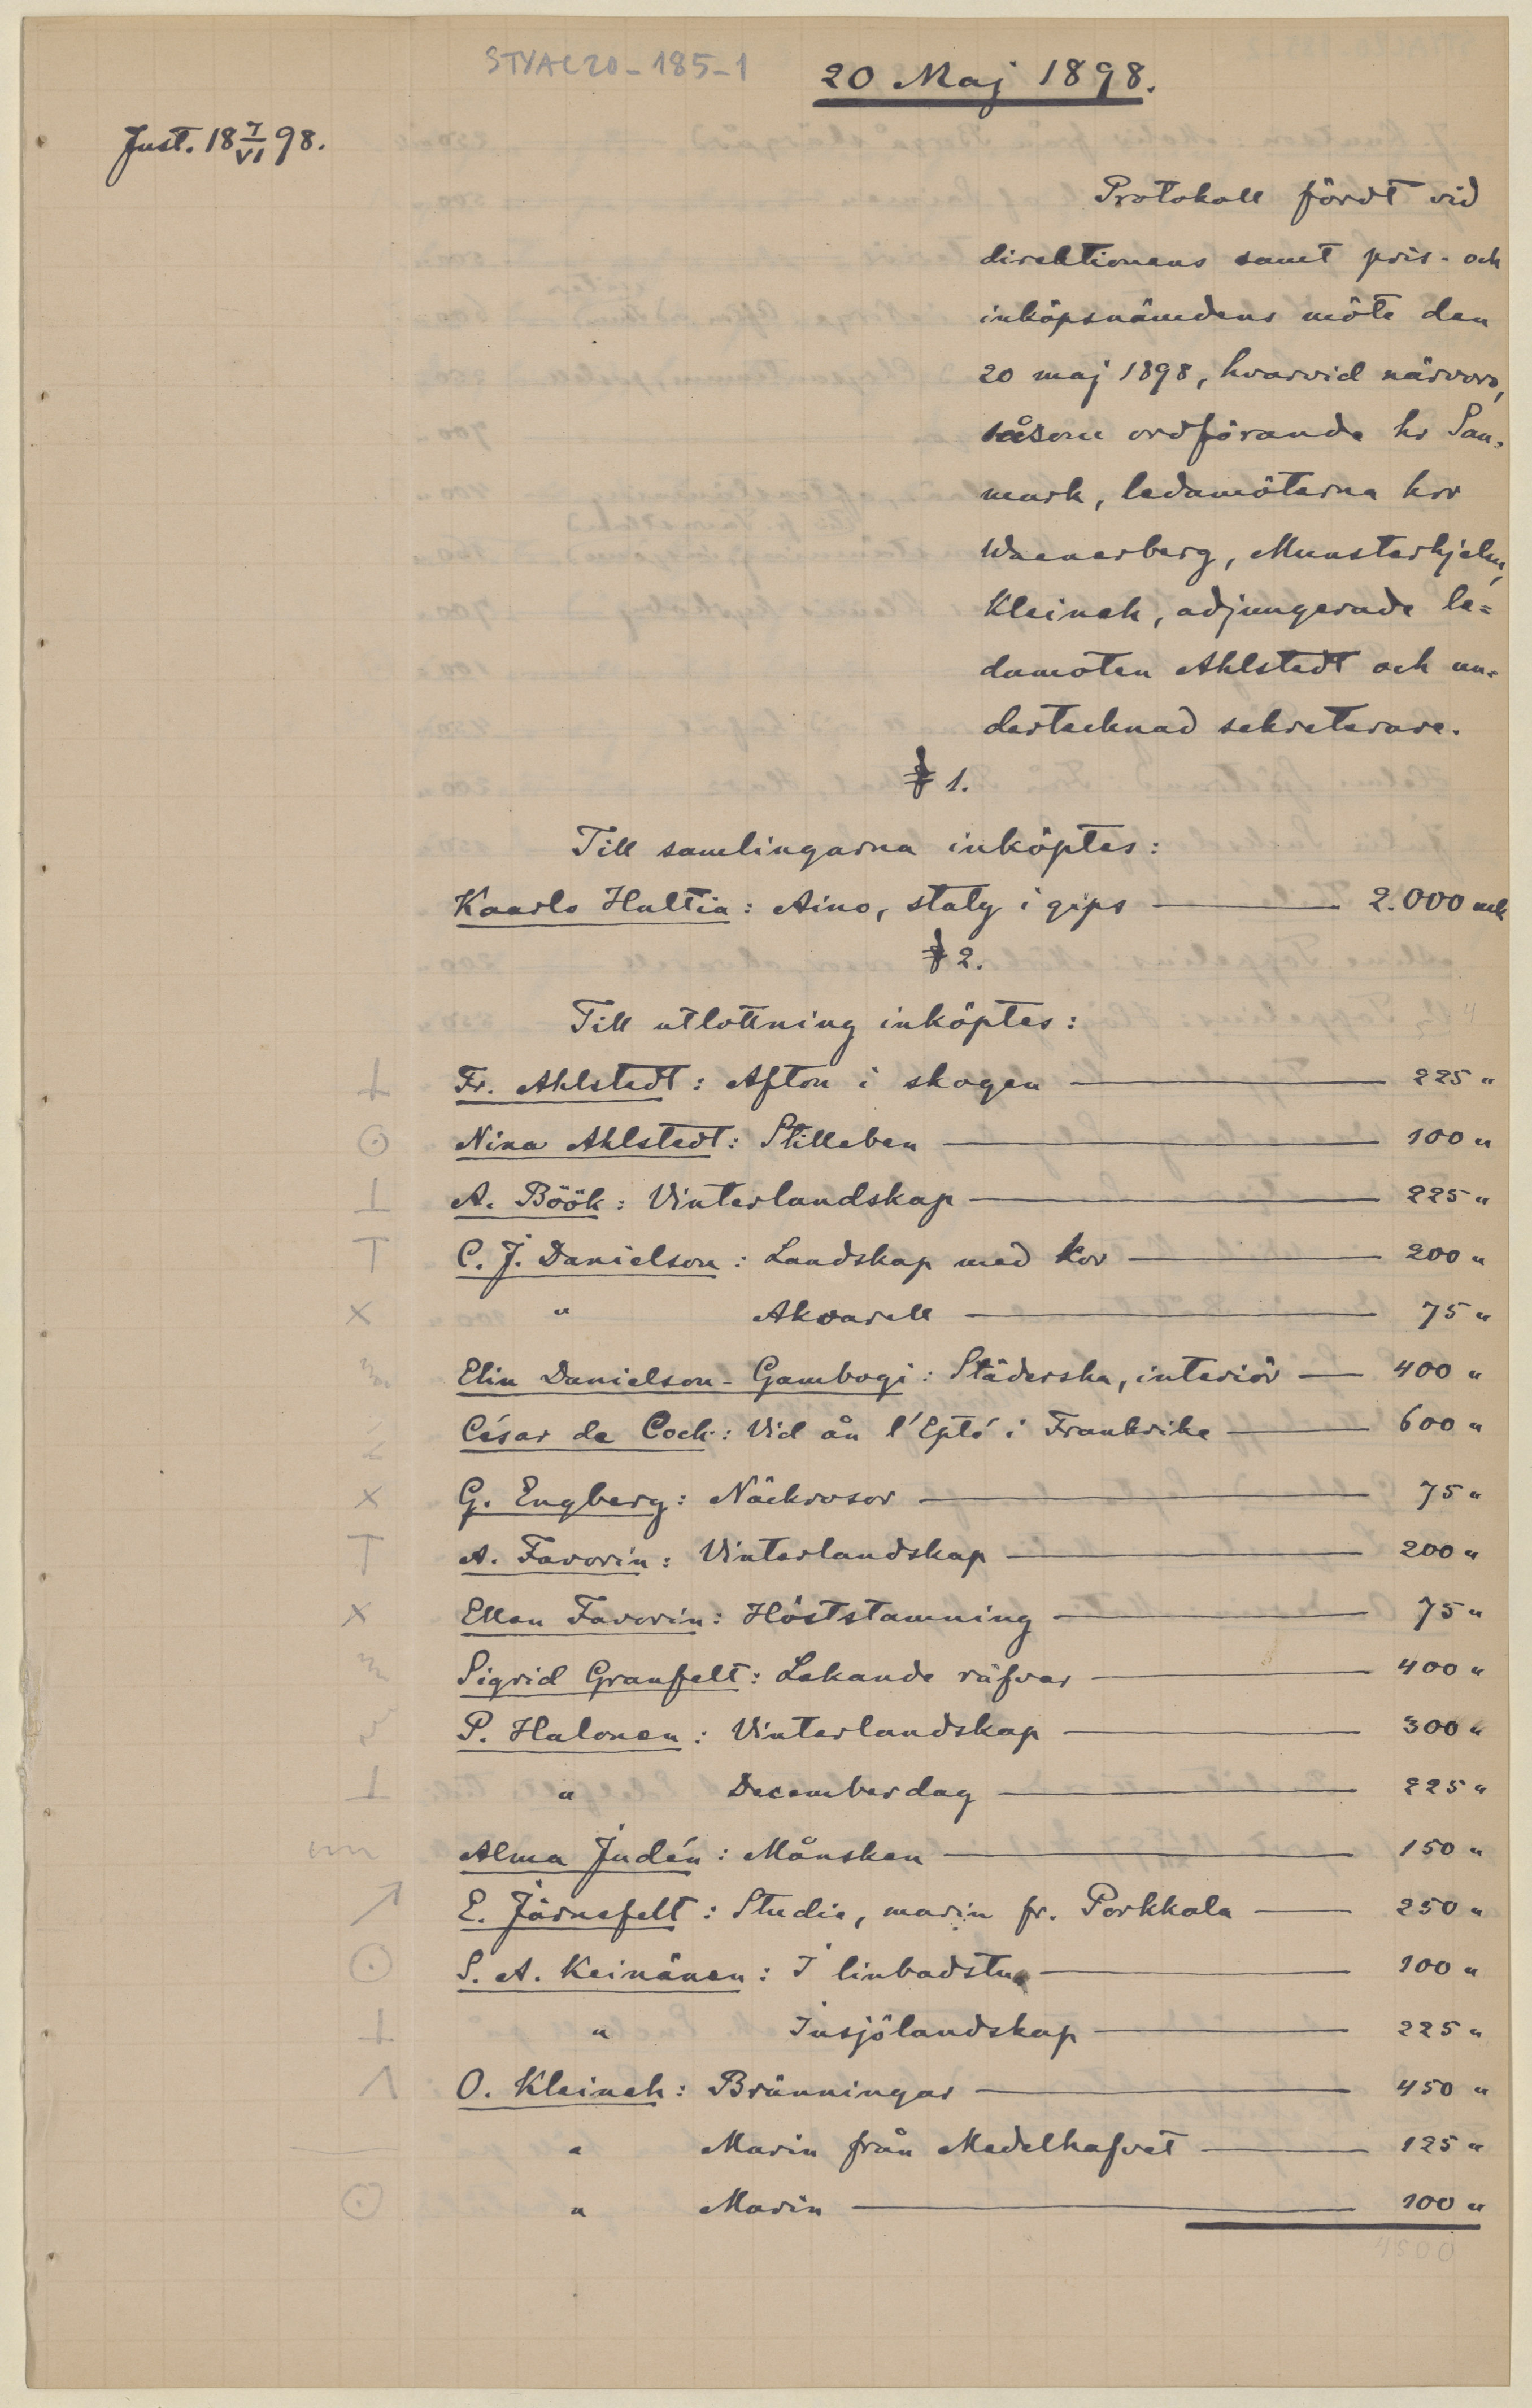 STYAC20-185-1
20 Maj 1898.
Just. 18 7/VI 98.
Protokoll fördt vid
direktionens samt pris- och
inköpsnämdens möte den
20 maj 1898, hvarvid närvoro,
såsom ordförande hr San-
mark, ledamöterna hrr
Waenerberg, Munsterhjelm,
Kleineh, adjungerade le=
damoten Ahlstedt och un-
dertecknad sekreterare.
§ 1.
Till samlingarna inköptes:
Kaarlo Haltia: Aino, staty i gips — 2.000 mk
§ 2.
Till utlottning inköptes:
Fr. Ahlstedt: Afton i skogen — 225 "
Nina Ahlstedt: Stilleben — 100 "
A. Böök: Vinterlandskap — 225 "
C. J. Danielson: Landskap med kor — 200 "
" Akvarell — 75 "
Elin Danielson-Gambogi: Städerska, interiör — 400 "
César de Cock: Vid ån l'Epté i Frankrike — 600 "
G. Engberg: Näckrosor — 75 "
A. Favorin: Vinterlandskap — 200 "
Ellen Favorin: Höststämning — 75 "
Sigrid Granfelt: Lekande räfvar — 400 "
P. Halonen: Vinterlandskap — 300 "
" Decemberdag — 225 "
Alma Judén: Månsken — 150 "
E. Järnefelt: Studie, marin fr. Porkkala — 250 "
S. A. Keinänen: I linbadstu — 100 "
" Insjölandskap — 225 "
O. Kleineh: Bränningar — 450 "
" Marin från Medelhafvet — 125 "
" Marin — 100 "
4500